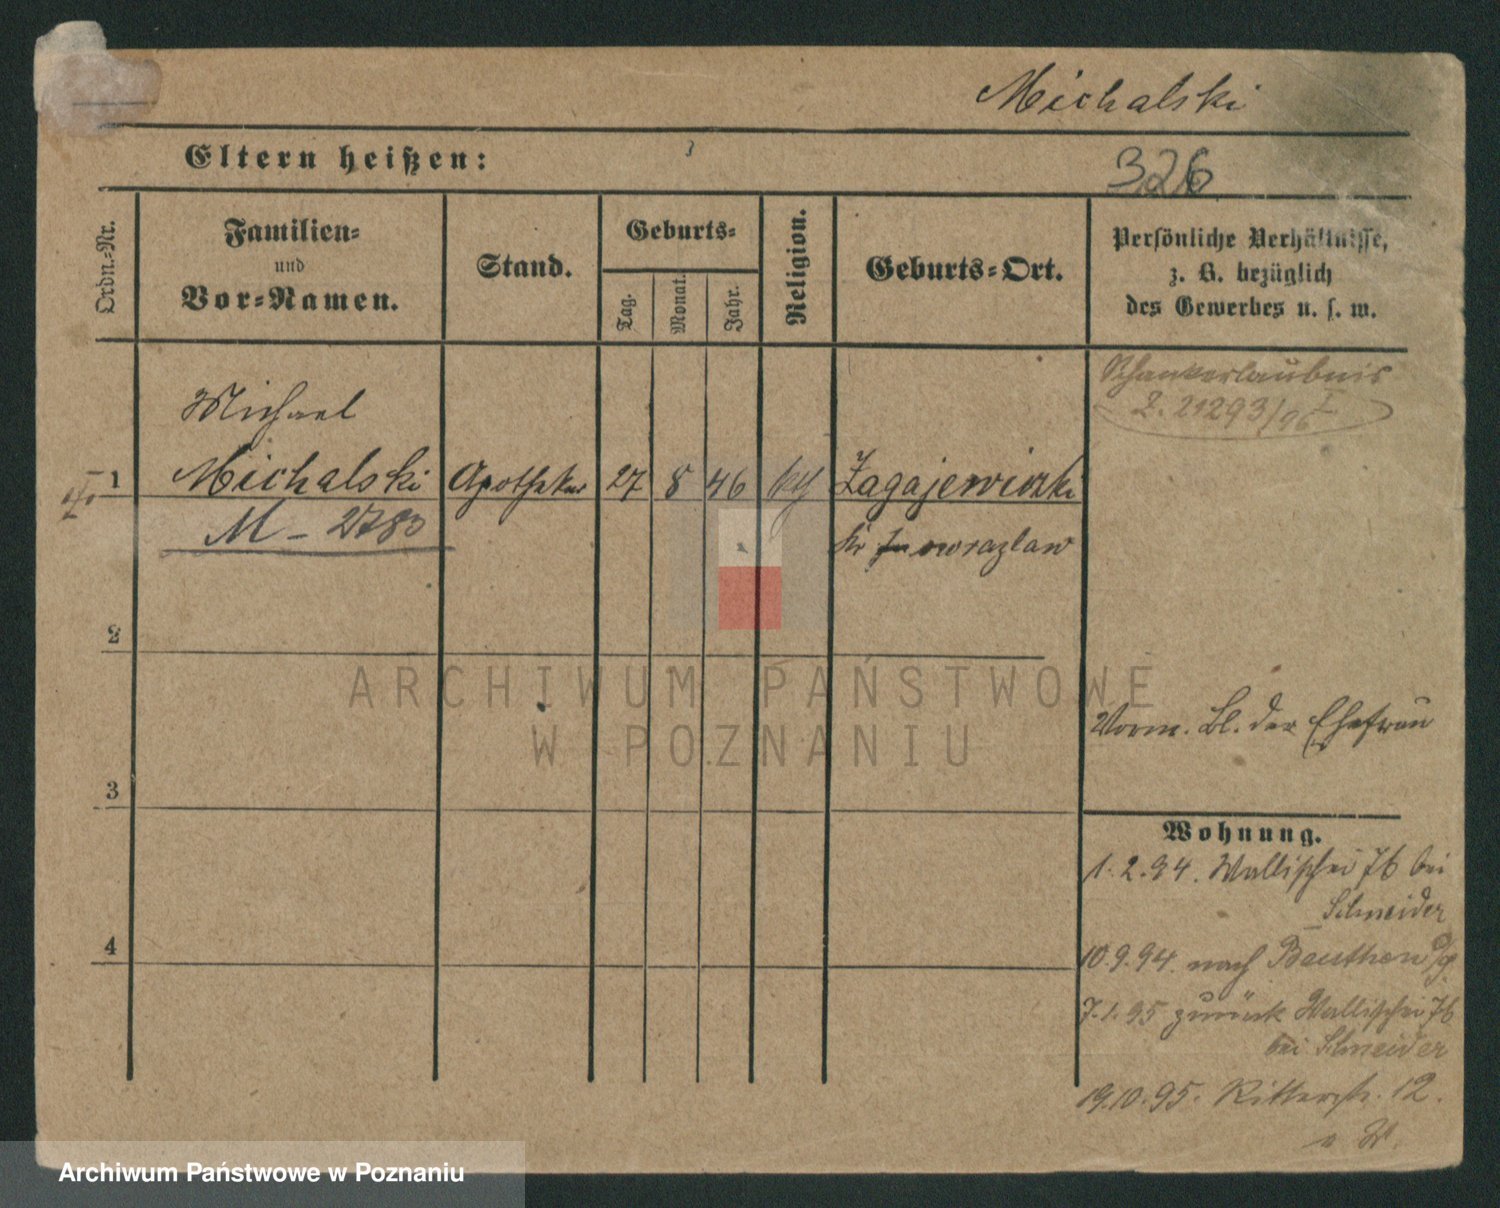 Michalski
Eltern heißen:
326
Ordn.-Nr.
Familien-
und
Vor-Namen.
Stand.
Geburts-
Tag.
Monat.
Jahr.
Religion.
Geburts-Ort.
Persönliche Verhältnisse,
z. B. bezüglich
des Gewerbes u. s. w.
Schankerlaubnis
Z. 21293/96 I
Michael
1 Michalski Apotheker 27 8 46 kth Zagajewiczki
M - 2783
Kr Inowrazlaw
2
ARCHIWUM PAŃSTWOWE
W POZNANIU
Vorm. Bl. der Ehefrau
3
Wohnung.
1.2.94. Wallischei 76 bei
Schneider
4
10.9.94. nach Beuthen O/S
7.1.95 zurück Wallischei 76
bei Schneider
19.10.95. Ritterstr. 12.
Archiwum Państwowe w Poznaniu